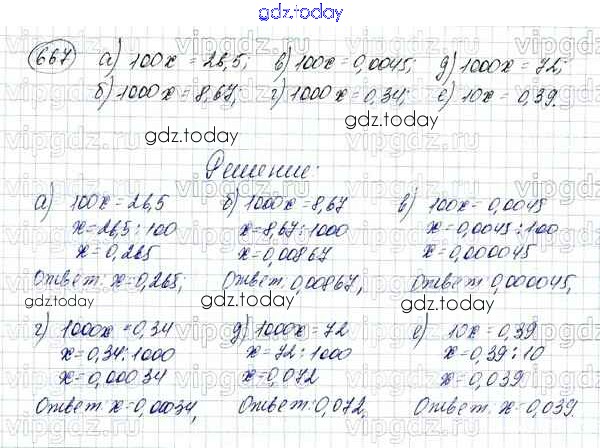 gdz.today
667 а) 100x = 26,5; в) 100x = 0,0045; д) 1000x = 72;
б) 1000x = 8,67; г) 1000x = 0,34; е) 10x = 0,39.
gdz.today gdz.today
Решение:
а) 100x = 26,5 б) 1000x = 8,67 в) 100x = 0,0045
x = 26,5 : 100 x = 8,67 : 1000 x = 0,0045 : 100
x = 0,265 x = 0,00867 x = 0,000045
Ответ: x = 0,265; Ответ: 0,00867, Ответ 0,000045,
gdz.today gdz.today
г) 1000x = 0,34 д) 1000x = 72 е) 10x = 0,39
x = 0,34 : 1000 x = 72 : 1000 x = 0,39 : 10
x = 0,00034 x = 0,072 x = 0,039
Ответ: x = 0,00034, Ответ: 0,072, Ответ: x = 0,039.
gdz.today gdz.today